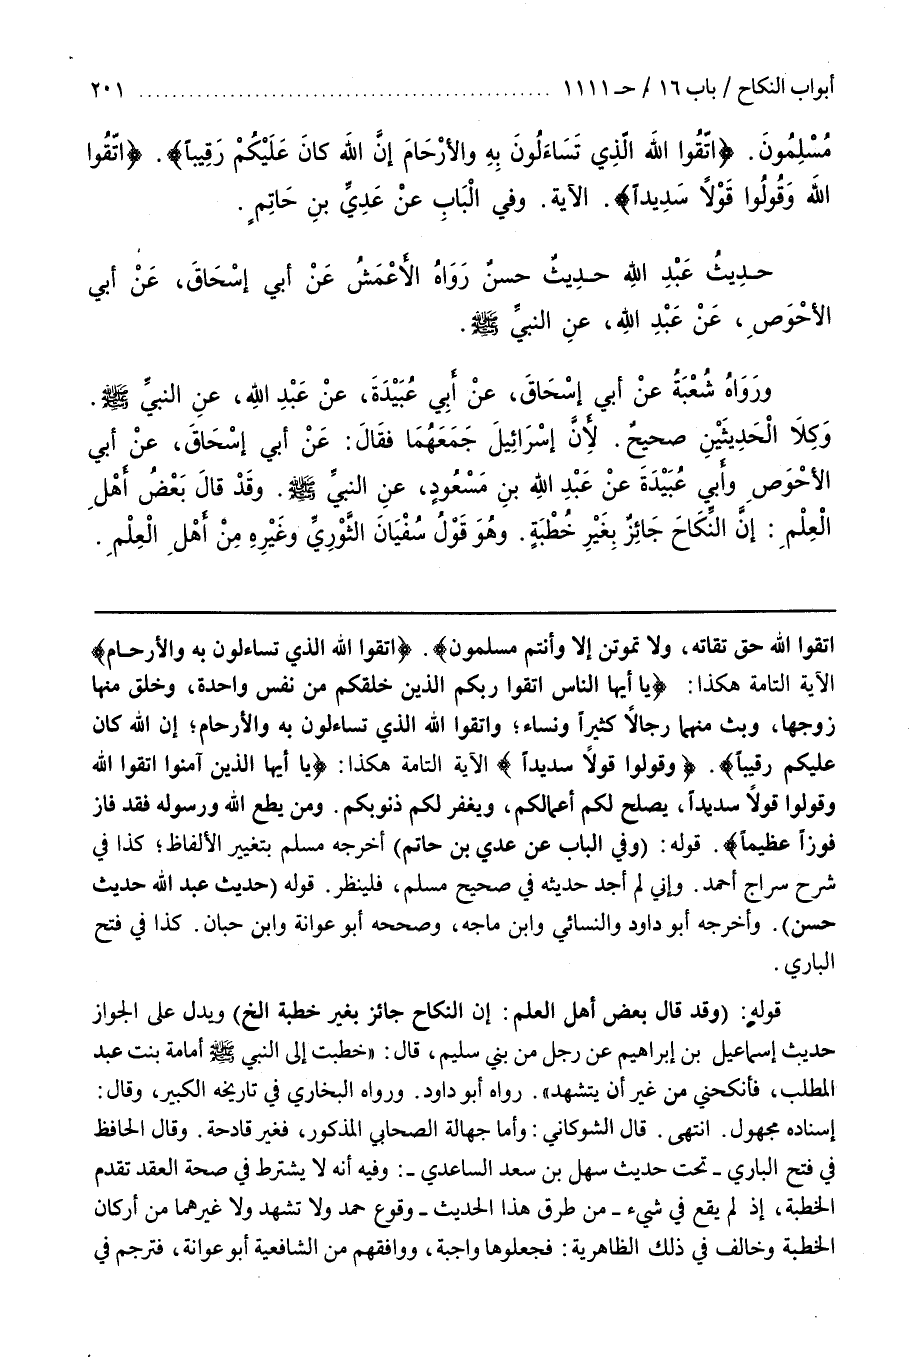 أبواب النكاح / باب ١٦ / حـ ١١١١ ................................................ ٢٠١
مُسْلِمُونَ. ﴿اتَّقُوا اللهَ الَّذِي تَسَاءَلُونَ بِهِ والأرْحَامَ إنَّ اللهَ كانَ عَلَيْكُمْ رَقِيباً﴾. ﴿اتَّقُوا
اللهَ وَقُولُوا قَوْلاً سَدِيداً﴾. الآية. وفي الْبَابِ عنْ عَدِيِّ بنِ حَاتِمٍ.
حـدِيثُ عَبْدِ اللهِ حـدِيثٌ حسنٌ رَوَاهُ الأَعْمَشُ عَنْ أبي إسْحَاقَ، عَنْ أبي
الأحْوَصِ، عَنْ عَبْدِ اللهِ، عنِ النبيِّ ﷺ.
ورَوَاهُ شُعْبَةُ عنْ أبي إسْحَاقَ، عنْ أَبِي عُبَيْدَةَ، عنْ عَبْدِ اللهِ، عنِ النبيِّ ﷺ.
وَكِلَا الْحَدِيثَيْنِ صحيحٌ. لِأَنَّ إسْرَائِيلَ جَمَعَهُمَا فقَالَ: عَنْ أبي إسْحَاقَ، عنْ أبي
الأحْوَصِ وأَبي عُبَيْدَةَ عنْ عَبْدِ اللهِ بنِ مَسْعُودٍ، عنِ النبيِّ ﷺ. وقَدْ قالَ بَعْضُ أَهْلِ
الْعِلْمِ: إنَّ النِّكَاحَ جَائِزٌ بِغَيْرِ خُطْبَةٍ. وهُوَ قَوْلُ سُفْيَانَ الثَّوْرِيِّ وغَيْرِهِ مِنْ أَهْلِ الْعِلْمِ.
اتقوا الله حق تقاته، ولا تموتن إلا وأنتم مسلمون﴾. ﴿اتقوا الله الذي تساءلون به والأرحـام﴾
الآية التامة هكذا: ﴿يا أيها الناس اتقوا ربكم الذين خلقكم من نفس واحدة، وخلق منها
زوجها، وبث منهما رجالاً كثيراً ونساء؛ واتقوا الله الذي تساءلون به والأرحام؛ إن الله كان
عليكم رقيباً﴾. ﴿وقولوا قولاً سديداً﴾ الآية التامة هكذا: ﴿يا أيها الذين آمنوا اتقوا الله
وقولوا قولاً سديداً، يصلح لكم أعمالكم، ويغفر لكم ذنوبكم. ومن يطع الله ورسوله فقد فاز
فوزاً عظيماً﴾. قوله: (وفي الباب عن عدي بن حاتم) أخرجه مسلم بتغيير الألفاظ؛ كذا في
شرح سراج أحمد. وإني لم أجد حديثه في صحيح مسلم، فلينظر. قوله (حديث عبد الله حديث
حسن). وأخرجه أبو داود والنسائي وابن ماجه، وصححه أبو عوانة وابن حبان. كذا في فتح
الباري.
قوله: (وقد قال بعض أهل العلم: إن النكاح جائز بغير خطبة الخ) ويدل على الجواز
حديث إسماعيل بن إبراهيم عن رجل من بني سليم، قال: «خطبت إلى النبي ﷺ أمامة بنت عبد
المطلب، فأنكحني من غير أن يتشهد». رواه أبو داود. ورواه البخاري في تاريخه الكبير، وقال:
إسناده مجهول. انتهى. قال الشوكاني: وأما جهالة الصحابي المذكور، فغير قادحة. وقال الحافظ
في فتح الباري ـ تحت حديث سهل بن سعد الساعدي ـ: وفيه أنه لا يشترط في صحة العقد تقدم
الخطبة، إذ لم يقع في شيء ـ من طرق هذا الحديث ـ وقوع حمد ولا تشهد ولا غيرهما من أركان
الخطبة وخالف في ذلك الظاهرية: فجعلوها واجبة، ووافقهم من الشافعية أبو عوانة، فترجم في